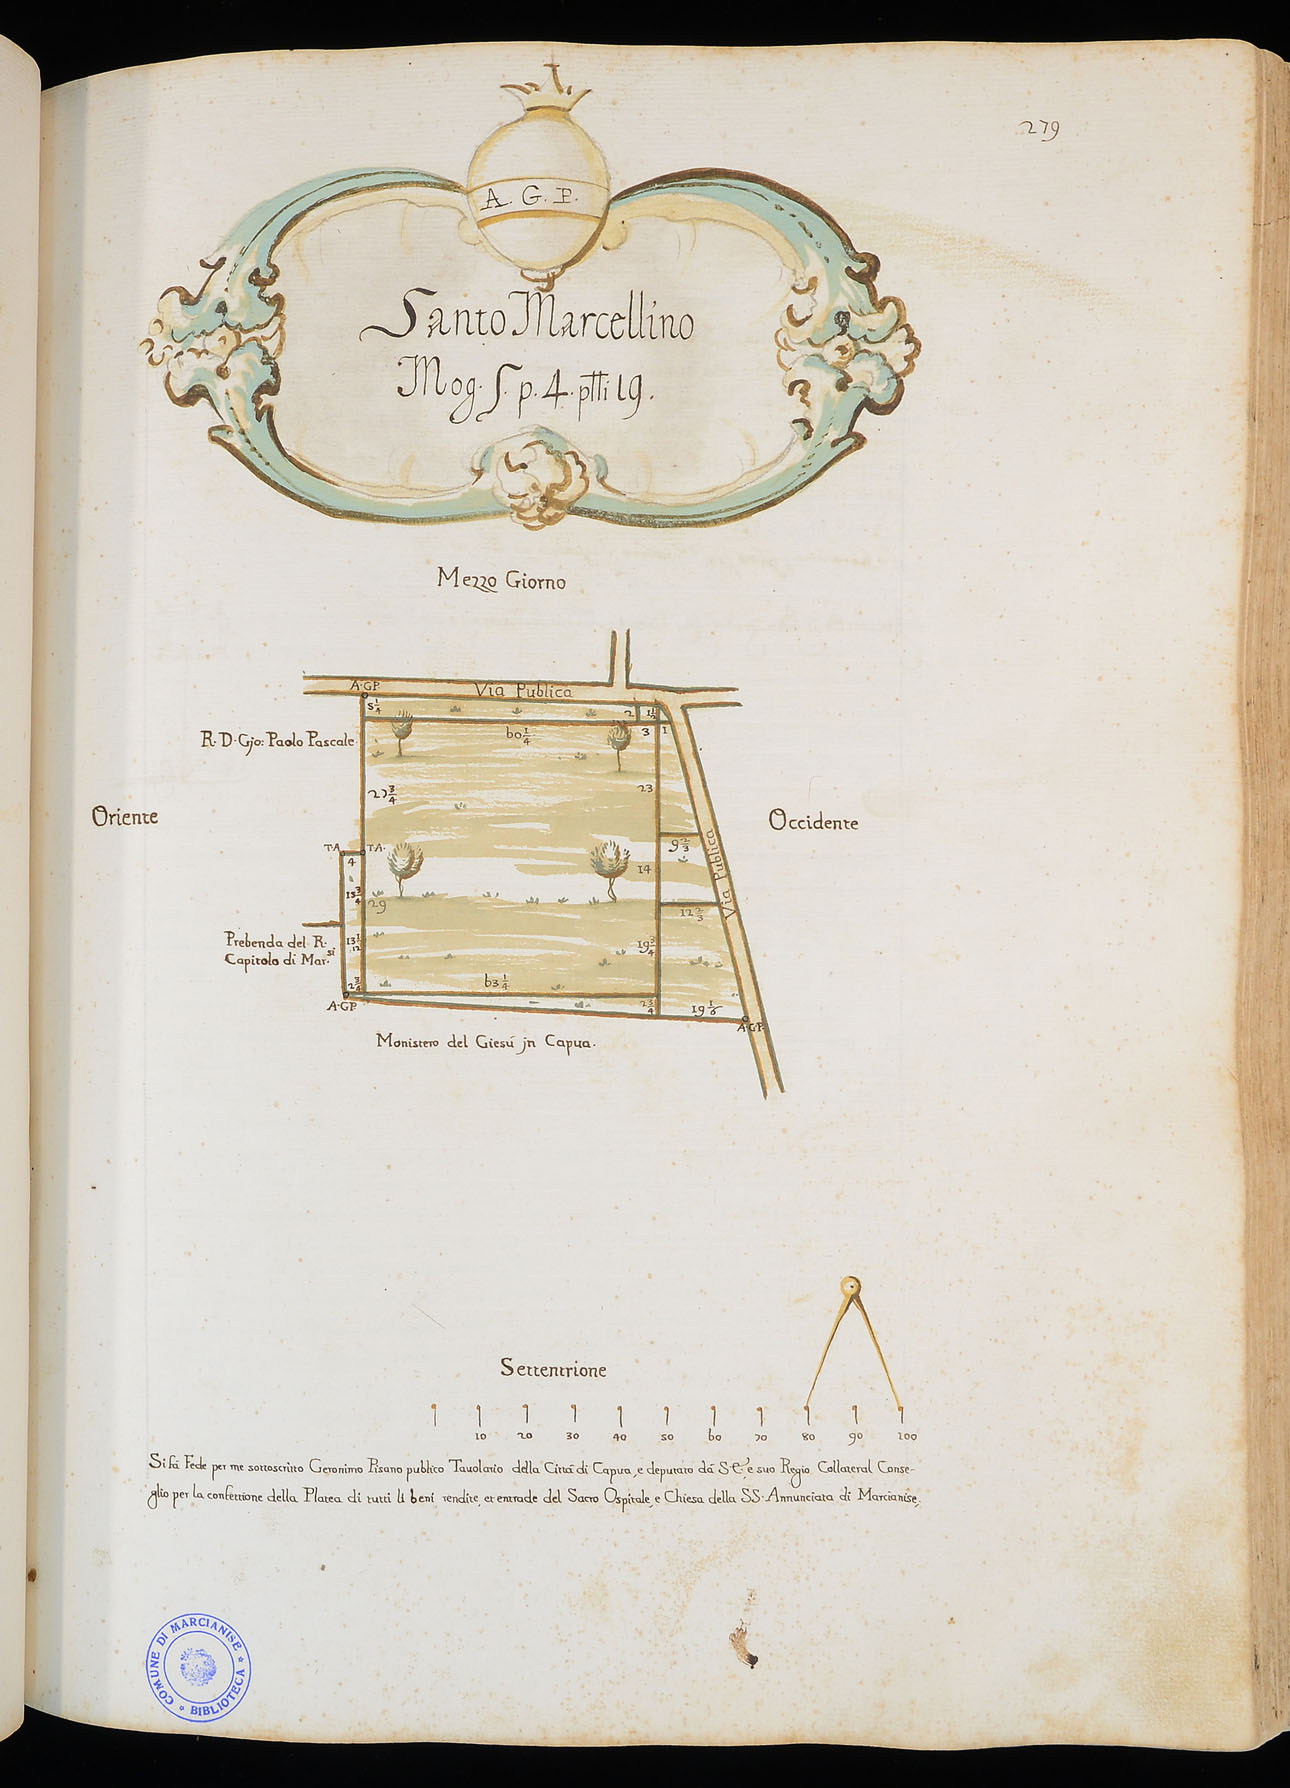 279
A. G. P.
Santo Marcellino
Mog. S. p. 4. ptti 19.
Mezzo Giorno
A.G.P.
Via Publica
5 1/4
2
1 1/2
R. D. Gio: Paolo Pascale
60 1/4
3
1
27 3/4
23
Oriente
Occidente
T.A.
T.A.
9 2/3
Via Publica
4
14
13 3/4
29
12 2/3
Prebenda del R.
Capitolo di Mar.si
13 1/12
19 3/4
2 3/4
63 1/4
A.G.P.
2 3/4
19 1/6
A.G.P.
Monistero del Giesú jn Capua.
Settentrione
10 20 30 40 50 60 70 80 90 100
Si fá Fede per me sottoscritto Geronimo Pisano publico Tavolario della Cittá di Capua, e deputato dá S. E. e suo Regio Collateral Conse-
glio per la confettione della Platea di tutti li beni, rendite, et entrade del Sacro Ospitale, e Chiesa della SS. Annunciata di Marcianise.
COMUNE DI MARCIANISE * BIBLIOTECA *